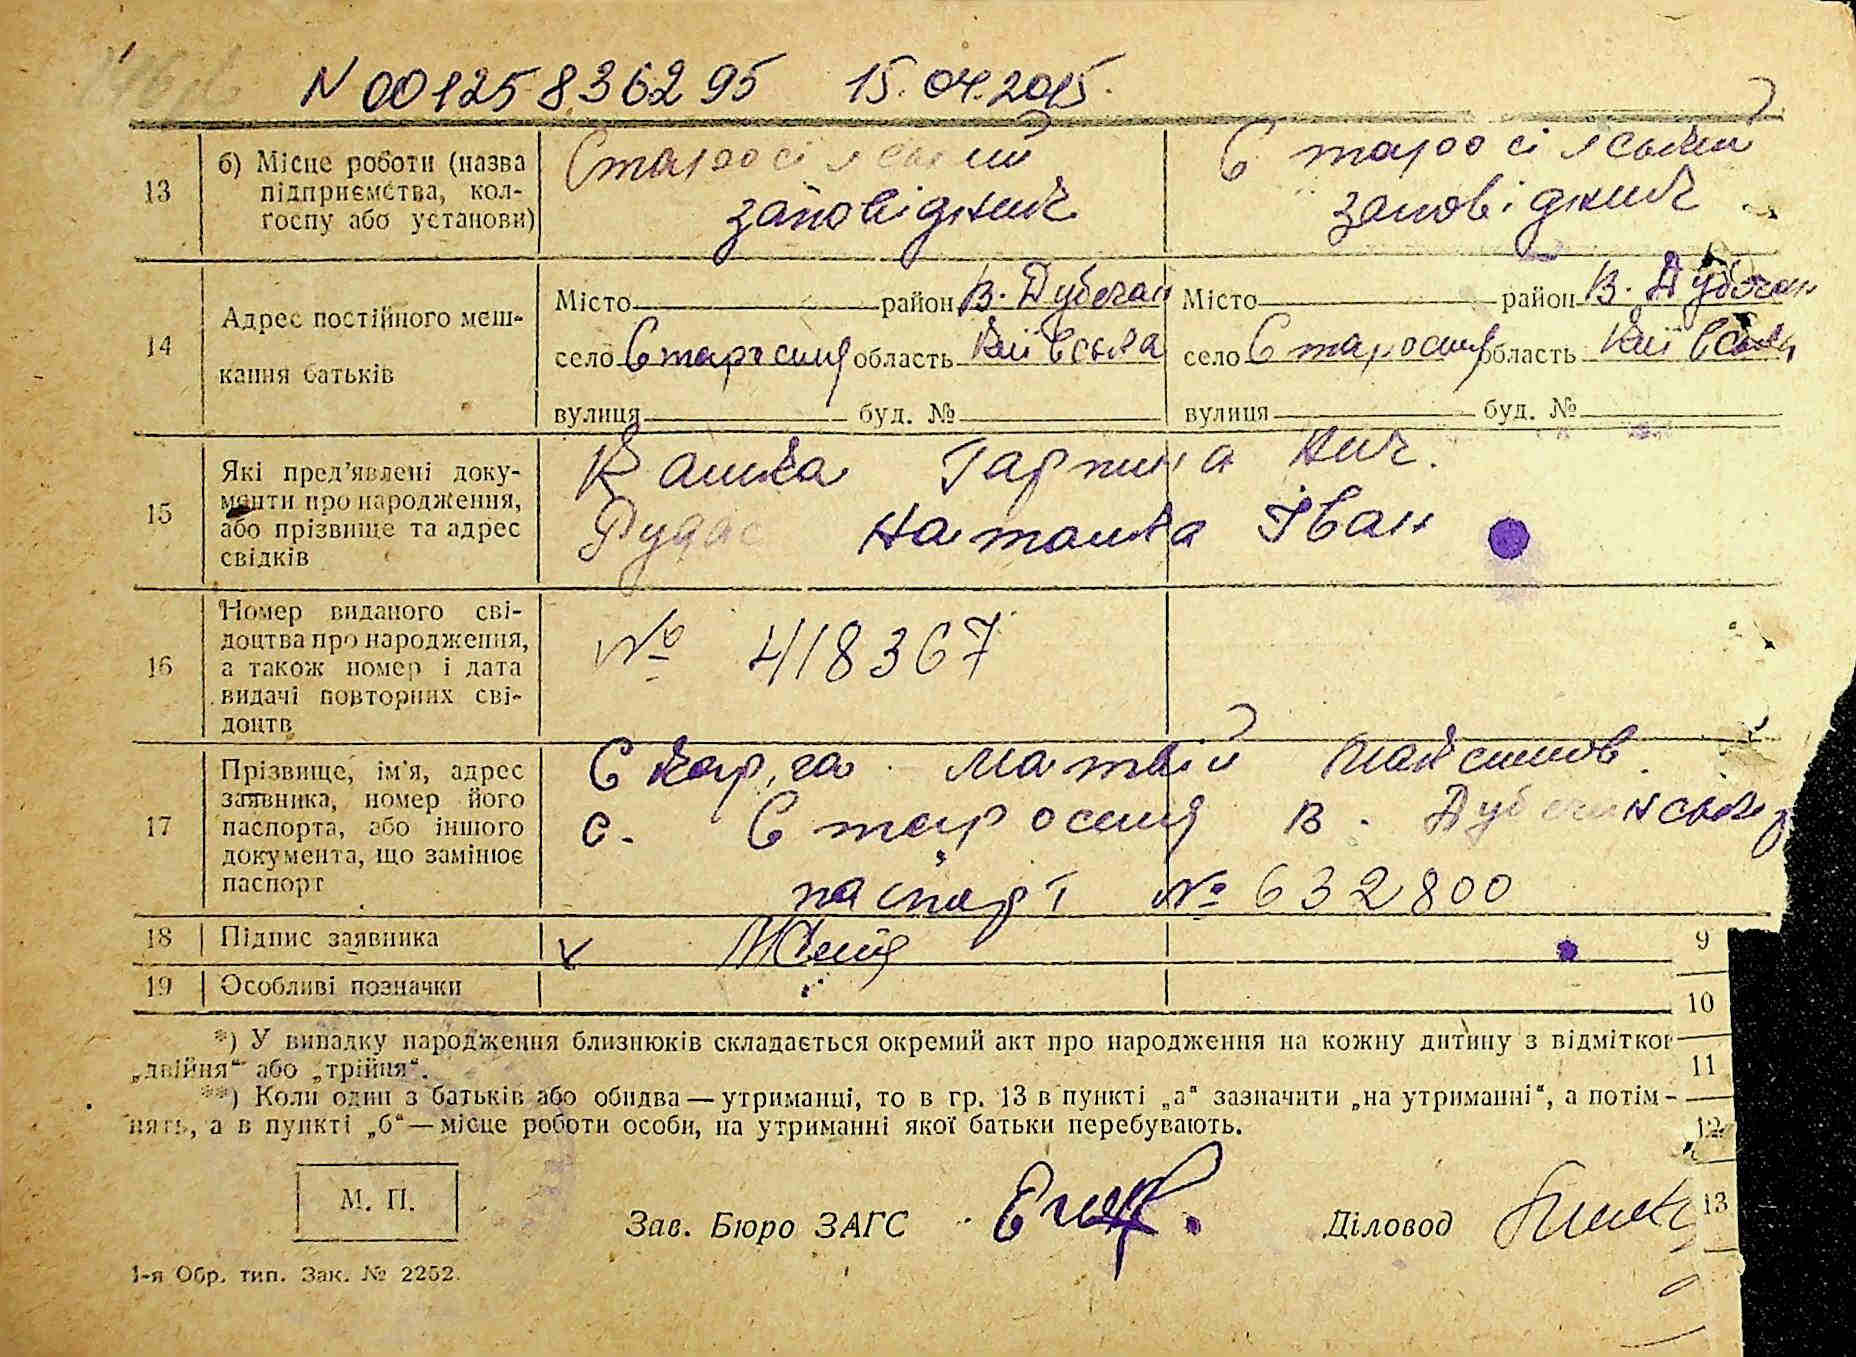 N 00125836295 15.04.2015.
13 б) Місце роботи (назва підприємства, кол-
госпу або установи)
Старосільский
заповідник
Старосільский
заповідник
14 Адрес постійного меш-
кання батьків
Місто район В. Дубечан
село Староселля область Київська
вулиця буд. №
Місто район В. Дубечан
село Староселля область Київська
вулиця буд. №
15 Які пред'явлені доку-
менти про народження,
або прізвище та адрес
свідків
Кашка Гарпина Ник.
Рудас Наталка Іван
16 Номер виданого сві-
доцтва про народження,
а також номер і дата
видачі повторних сві-
доцтв
№ 418367
17 Прізвище, ім'я, адрес
заявника, номер його
паспорта, або іншого
документа, що замінює
паспорт
Скарга Матвій Максимов.
с. Староселля В. Дубечанського
паспорт № 632800
18 Підпис заявника
9
19 Особливі позначки
10
*) У випадку народження близнюків складається окремий акт про народження на кожну дитину з відміткою
„двійня“ або „трійня“.
11
**) Коли один з батьків або обидва — утриманці, то в гр. 13 в пункті „а“ зазначити „на утриманні“, а потім -
нять, а в пункті „б“ — місце роботи особи, на утриманні якої батьки перебувають.
12
М. П.
Зав. Бюро ЗАГС
Діловод
13
1-я Обр. тип. Зак. № 2252.